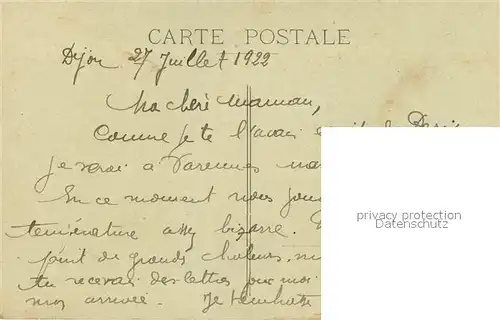 CARTE POSTALE
Dijon 27 Juillet 1922
Ma chère Maman,
Comme je te l'avais Paris
je serai à Varennes
En ce moment nous
température assez bizarre.
point de grandes chaleurs,
tu recevras des lettres pour moi
mon arrivée. Je t'embrasse
privacy protection
Datenschutz